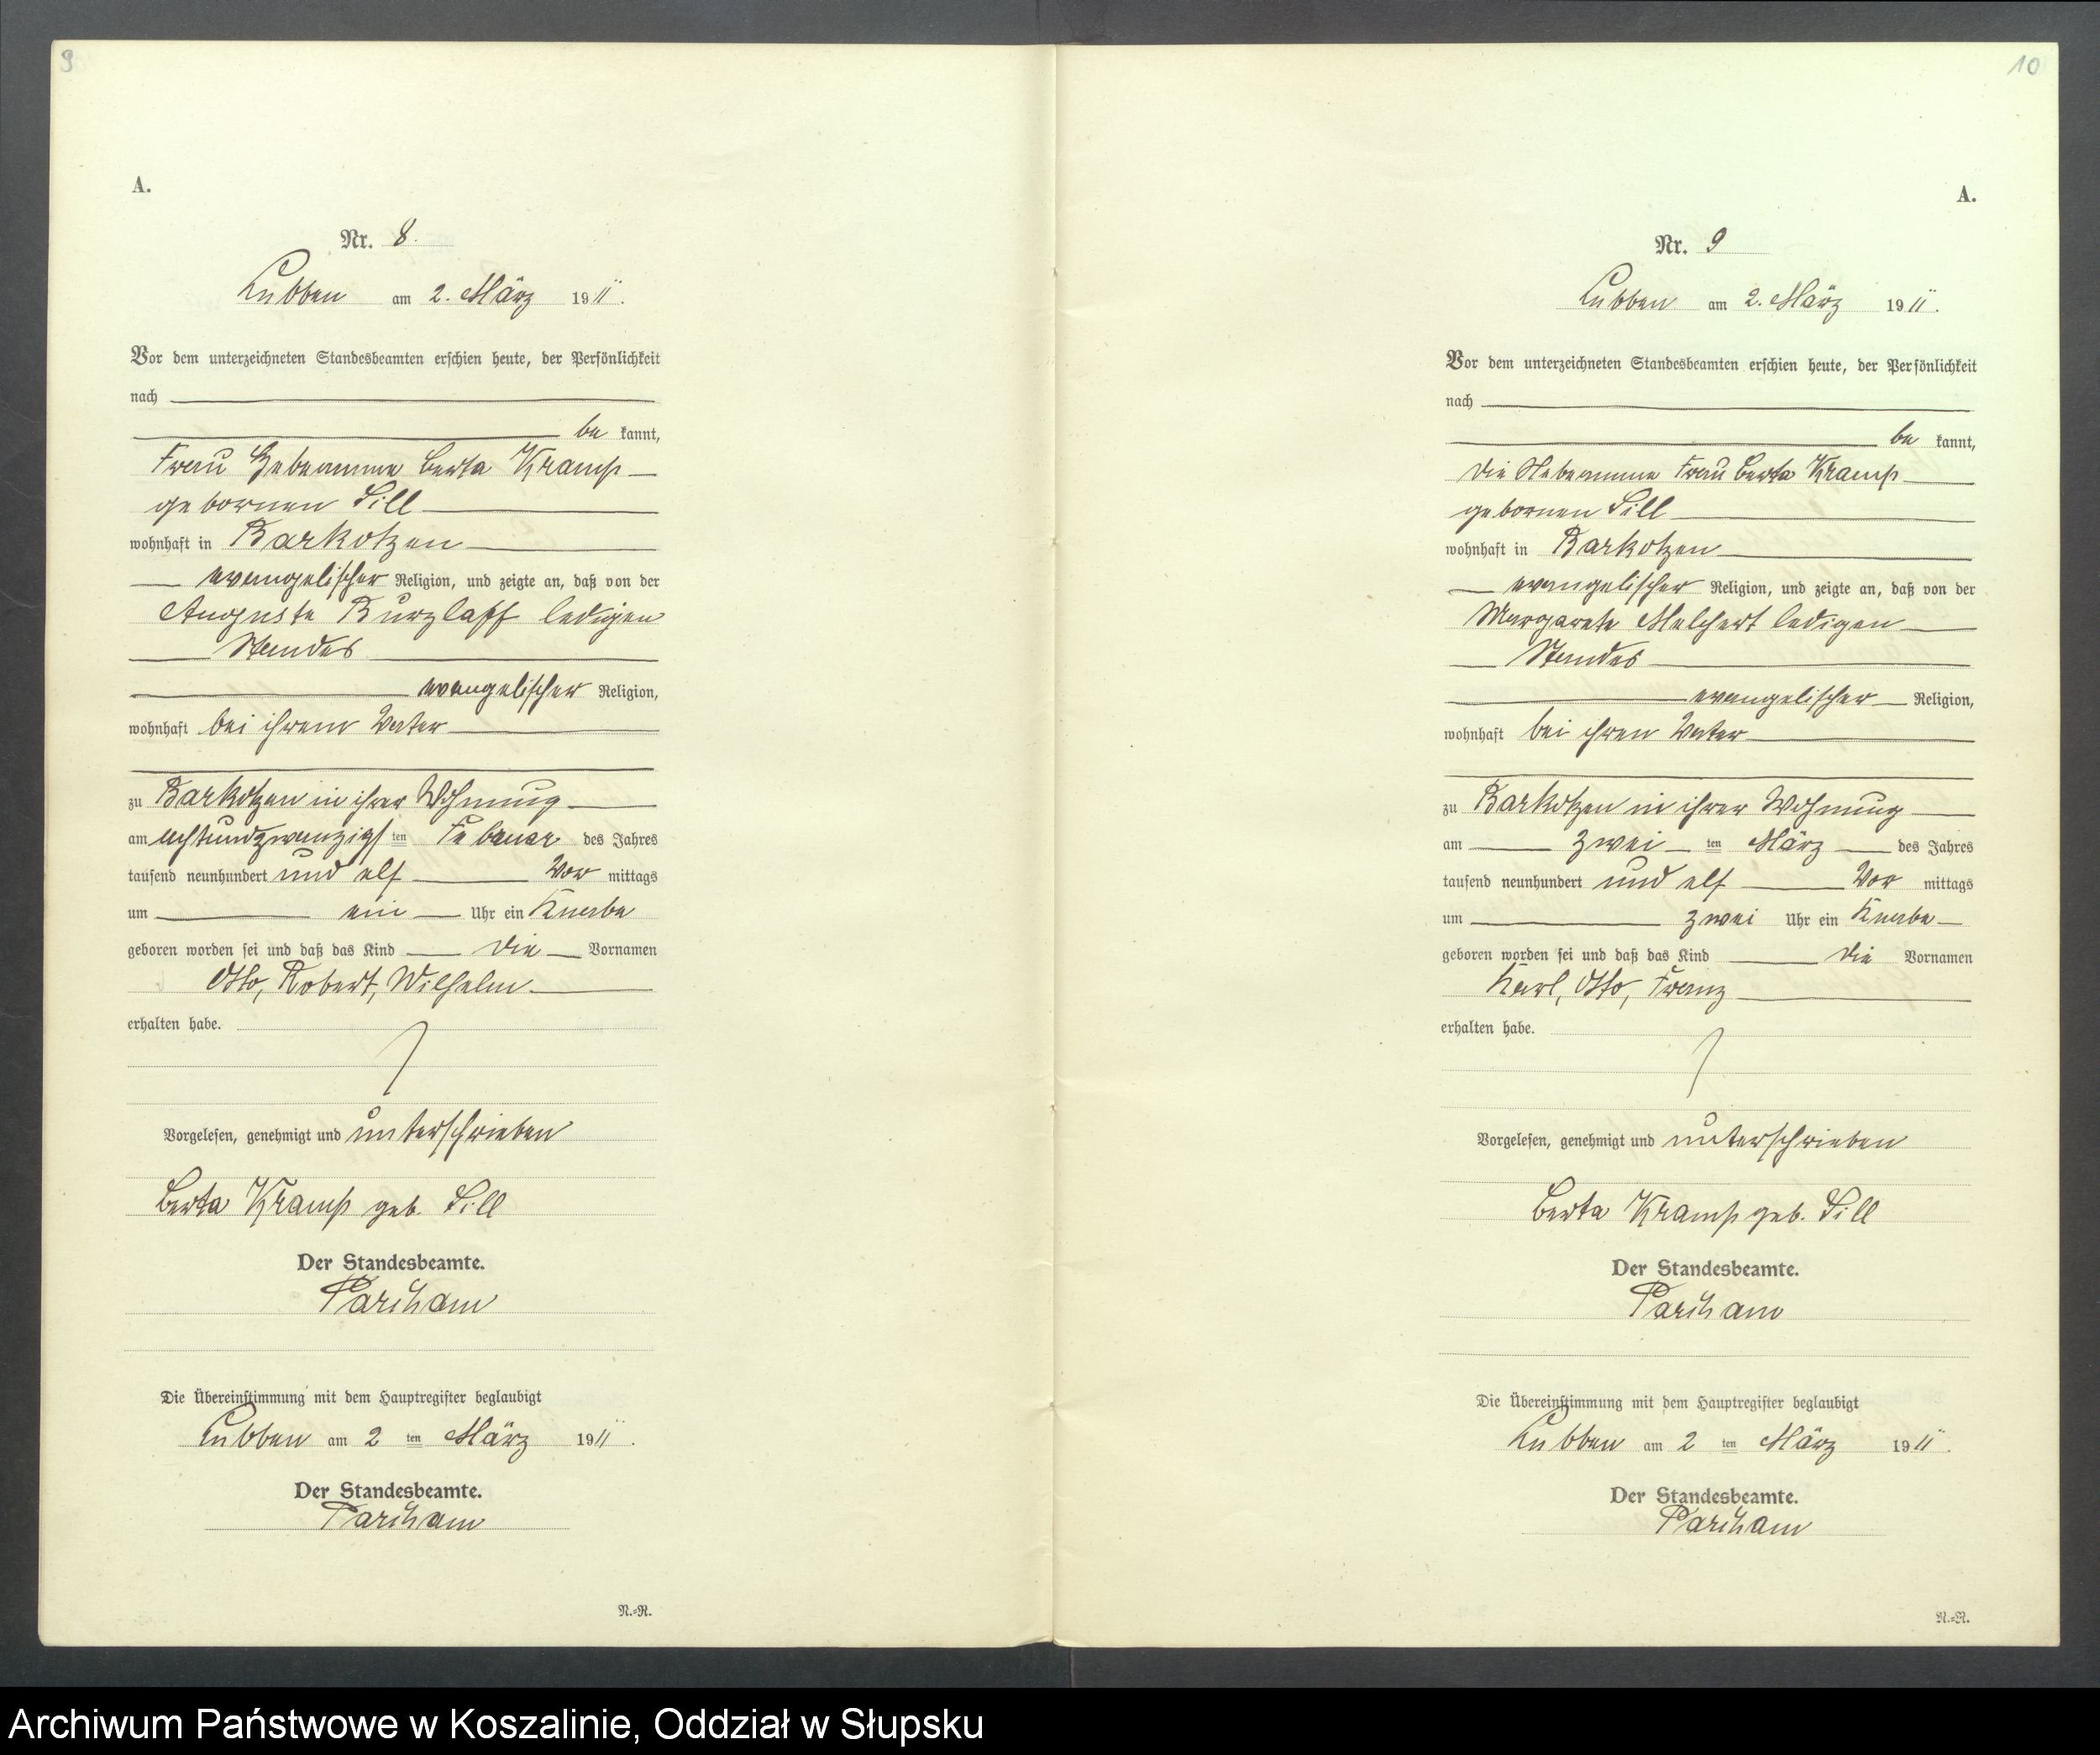 9
A.
Nr. 8.
Lubben am 2. März 1911.
Vor dem unterzeichneten Standesbeamten erschien heute, der Persönlichkeit
nach
be kannt,
Frau Hebeamme Berta Kramp
gebornen Sill
wohnhaft in Barkotzen
evangelischer Religion, und zeigte an, daß von der
Auguste Kurzlaff ledigen
Standes
evangelischer Religion,
wohnhaft bei ihrem Vater
zu Barkotzen in ihrer Wohnung
am achtundzwanzigsten Februar des Jahres
tausend neunhundert und elf Vor mittags
um ein Uhr ein Knabe
geboren worden sei und daß das Kind die Vornamen
Otto, Robert, Wilhelm
erhalten habe.
Vorgelesen, genehmigt und unterschrieben
Berta Kramp geb. Sill
Der Standesbeamte.
Die Übereinstimmung mit dem Hauptregister beglaubigt
Lubben am 2 ten März 1911.
Der Standesbeamte.
N.-R.
10
A.
Nr. 9
Lubben am 2. März 1911.
Vor dem unterzeichneten Standesbeamten erschien heute, der Persönlichkeit
nach
be kannt,
die Hebeamme Frau Berta Kramp
gebornen Sill
wohnhaft in Barkotzen
evangelischer Religion, und zeigte an, daß von der
Margarete Melchert ledigen
Standes
evangelischer Religion,
wohnhaft bei ihren Vater
zu Barkotzen in ihrer Wohnung
am zwei ten März des Jahres
tausend neunhundert und elf Vor mittags
um zwei Uhr ein Knabe
geboren worden sei und daß das Kind die Vornamen
Karl, Otto, Franz
erhalten habe.
Vorgelesen, genehmigt und unterschrieben
Berta Kramp geb. Sill
Der Standesbeamte.
Die Übereinstimmung mit dem Hauptregister beglaubigt
Lubben am 2 ten März 1911.
Der Standesbeamte.
N.-R.
Archiwum Państwowe w Koszalinie, Oddział w Słupsku